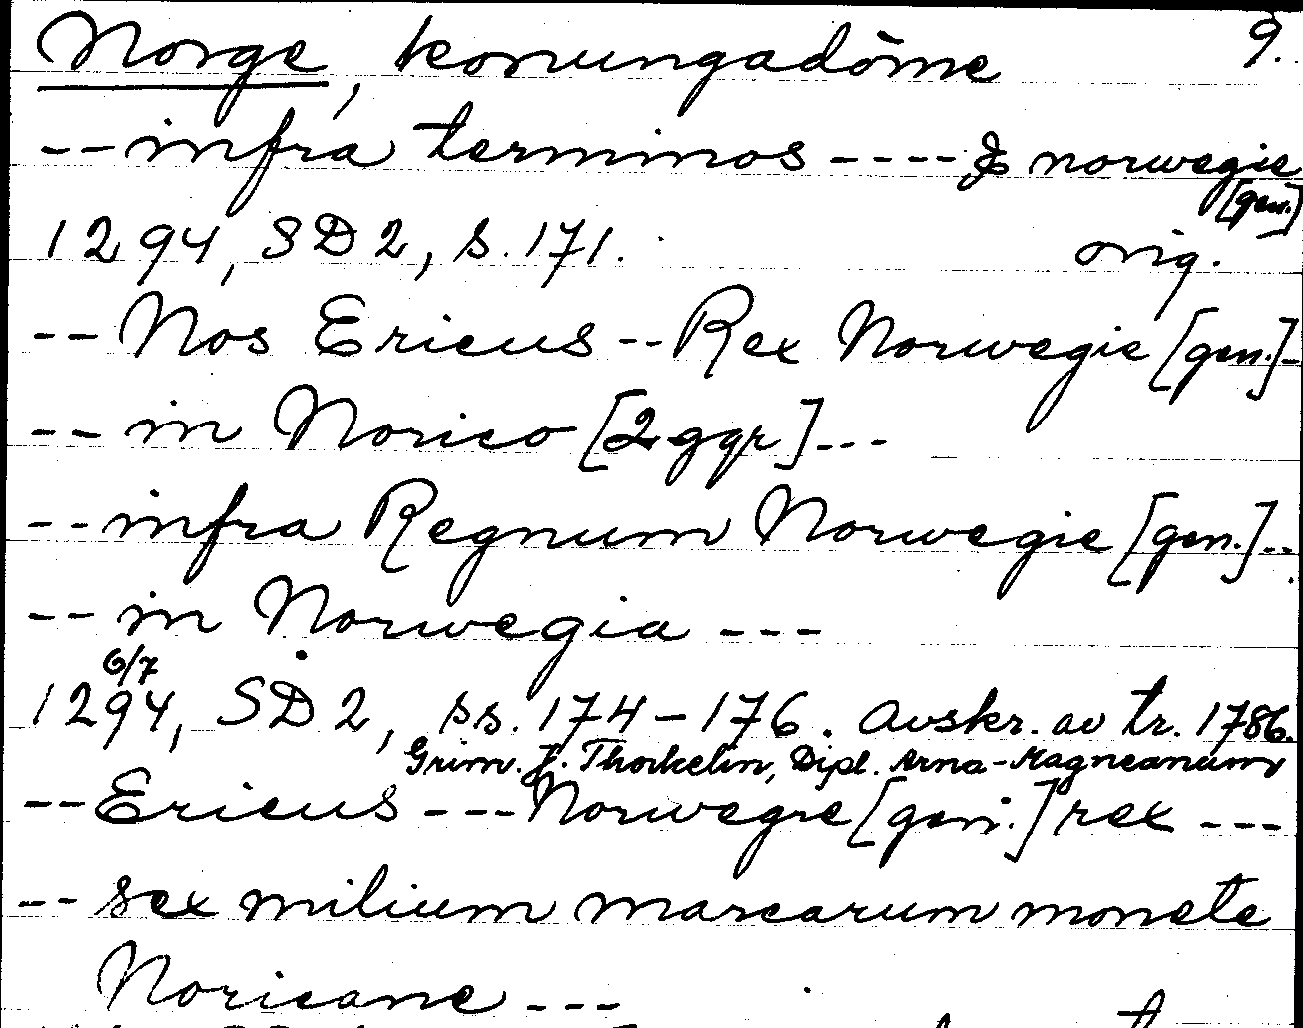 Norge, konungadöme 9.
--infra terminos ---- & norwegie
[gen.]
1294, SD 2, s. 171. orig.
--Nos Ericus--Rex Norwegie [gen.]-
--in Norico [2 ggr]---
--infra Regnum Norwegie [gen.]--
--in Norwegia ---
6/7
1294, SD 2, ss. 174-176. Avskr. av tr. 1786.
Grim. J. Thorkelin, Dipl. Arna-Magneanum
--Ericus ---Norwegie [gen.] rex ---
--sex milium marcarum monete
Noricane ---